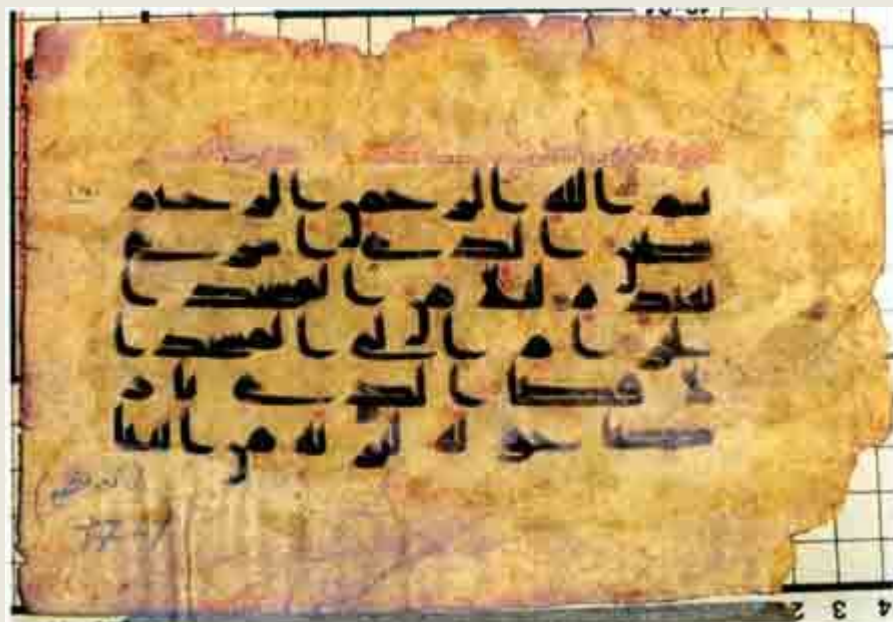 بسم الله الرحمن الرحيم
سبحن الذي اسرى
بعبده ليلا من المسجد ا
لحرام الى المسجد ا
لاقصا الذي بار
كنا حوله لنريه من ايتنا
2 3 4